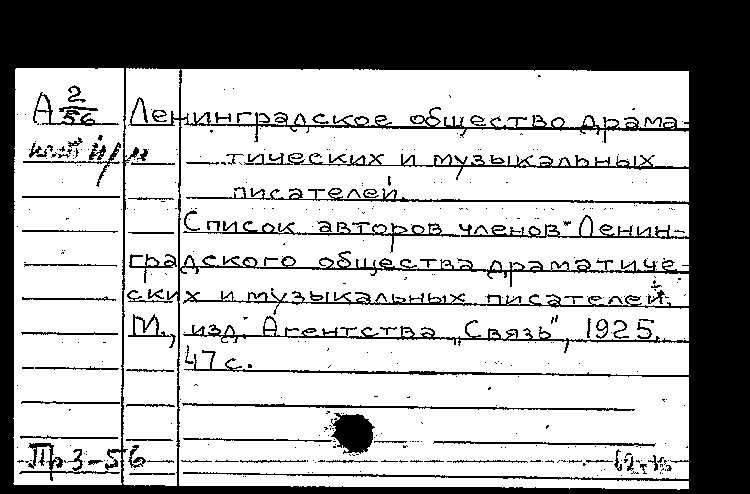 А 2/56 Ленинградское общество драма-
тических и музыкальных
писателей.
Список авторов членов Ленин-
градского общества драматиче-
ских и музыкальных писателей.
М., изд. Агентства „Связь“, 1925.
47 с.
Пр 3-56